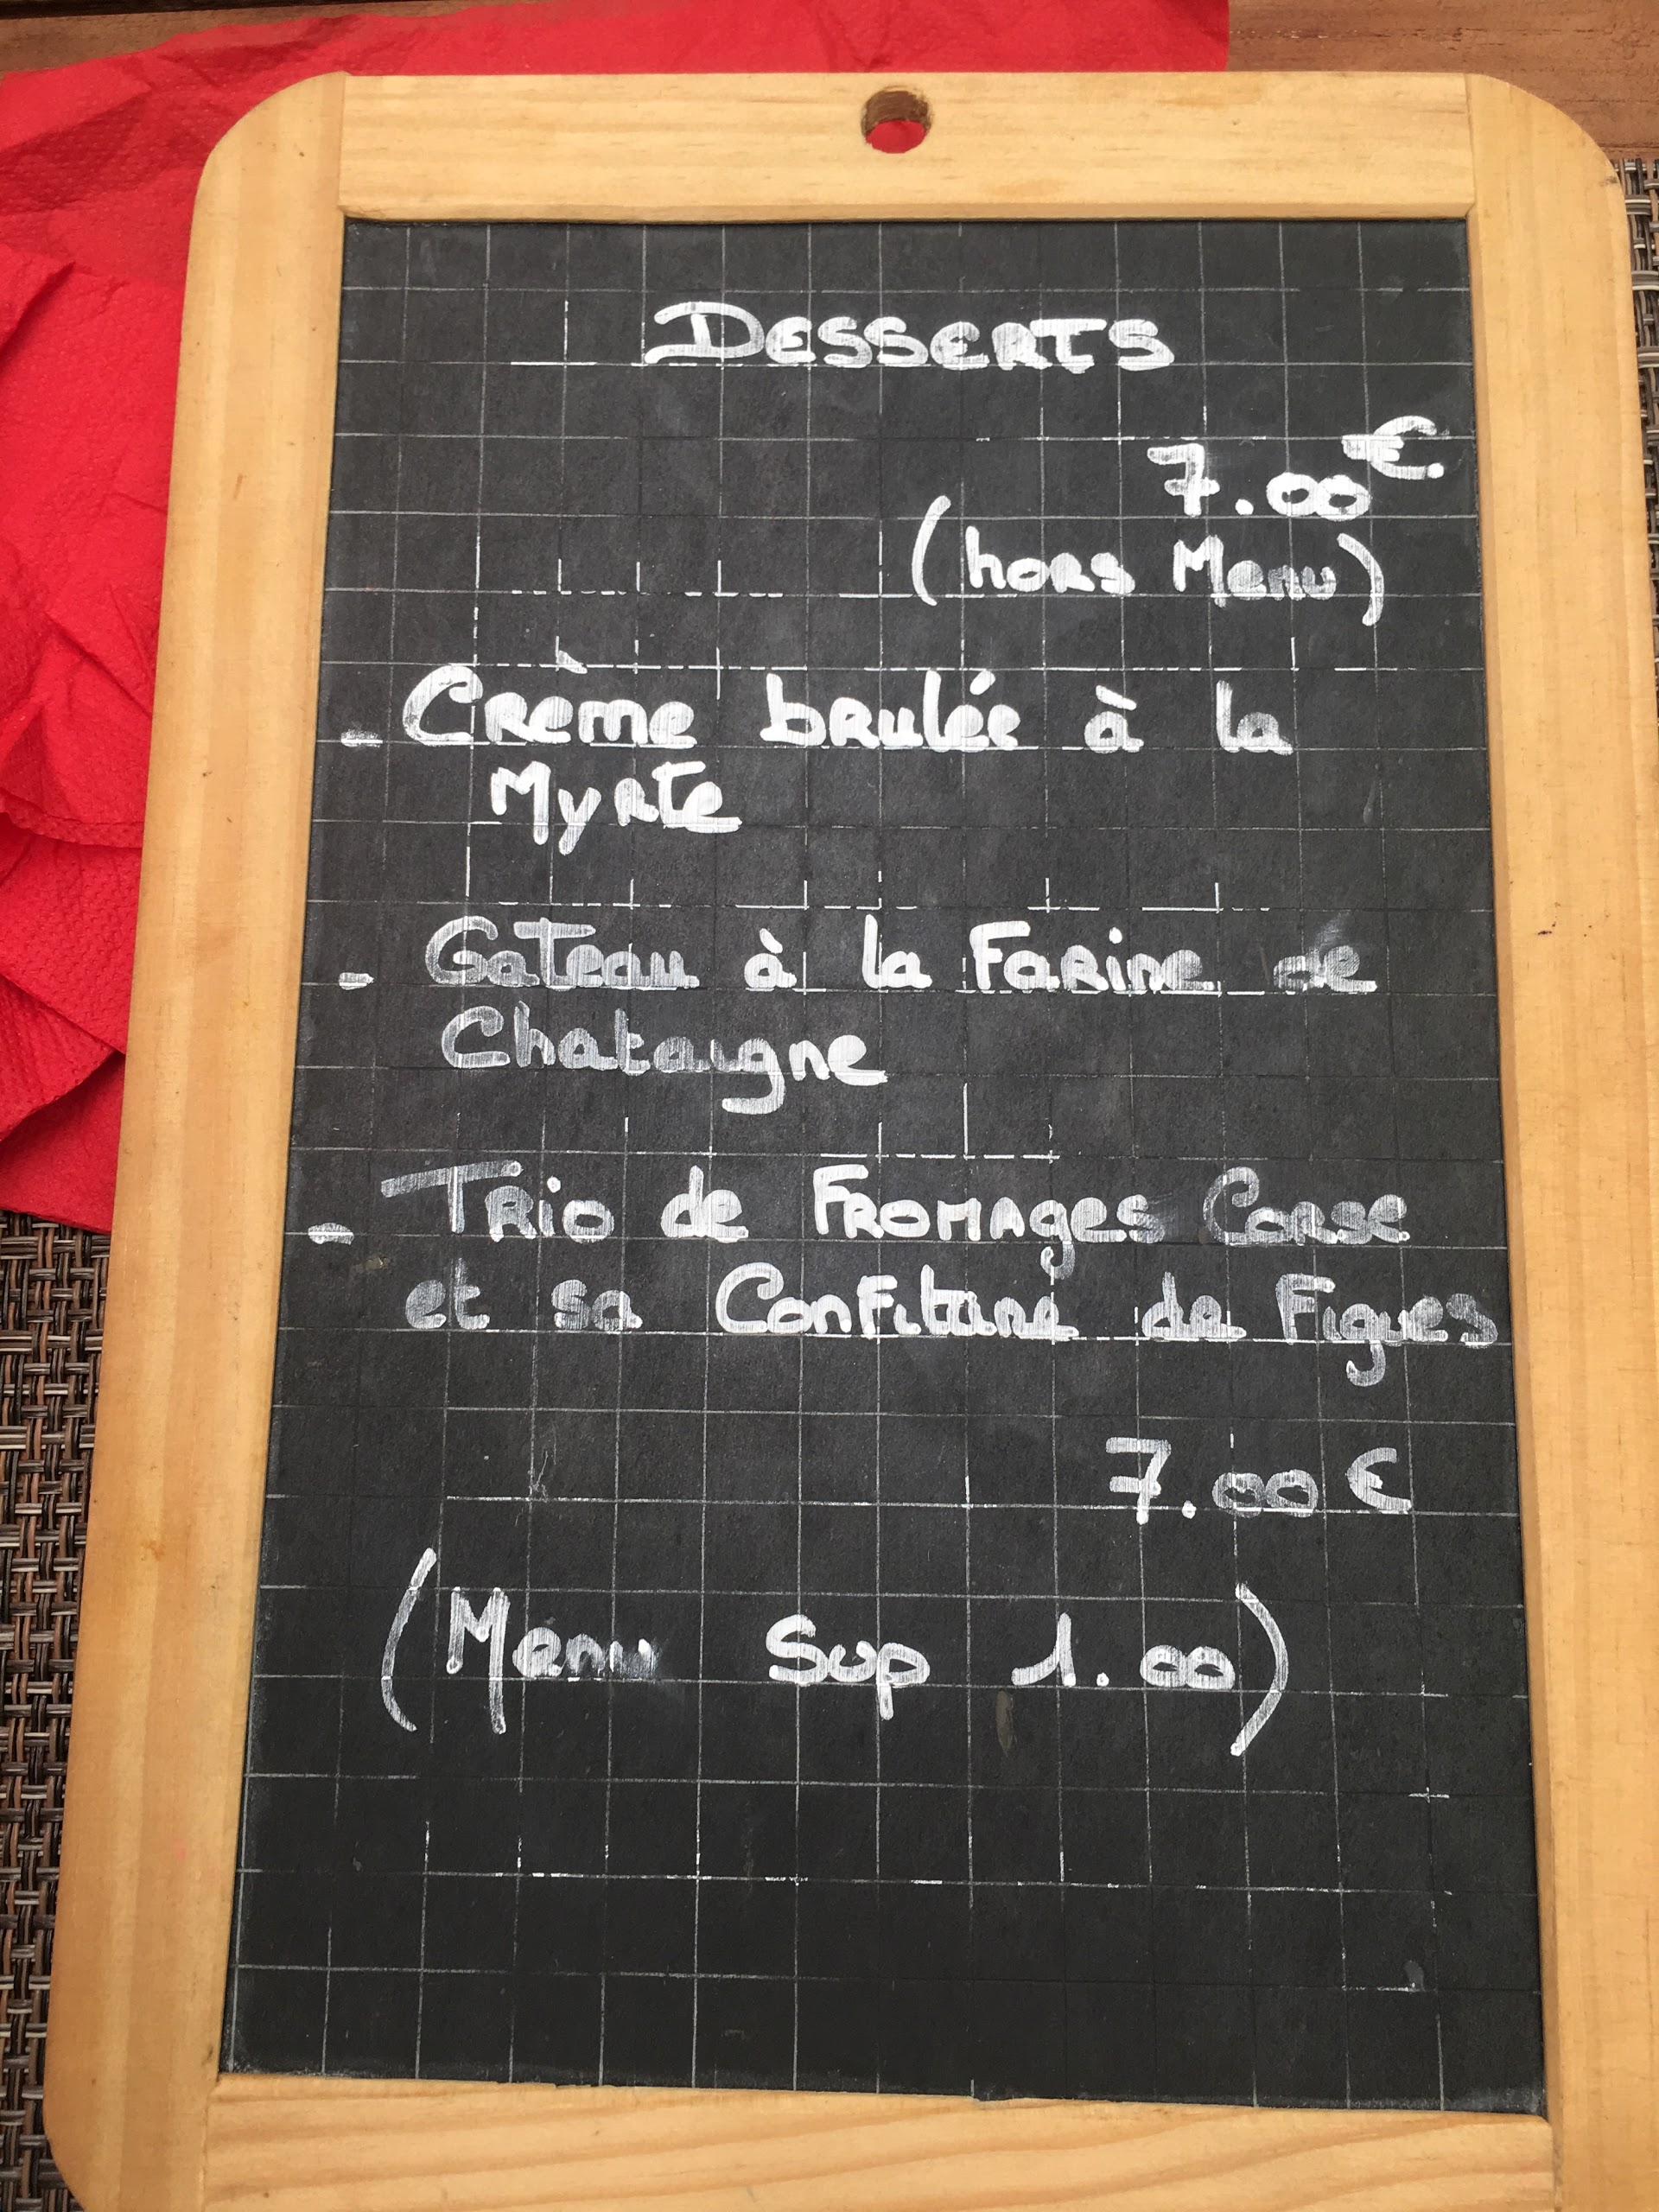 DESSERTS
7.00€
(hors Menu)
- Crème brulée à la
Myrte
- Gateau à la Farine de
Chataigne
- Trio de Fromages Corse
et sa Confiture de Figues
7.00 €
(Menu Sup 1.00)